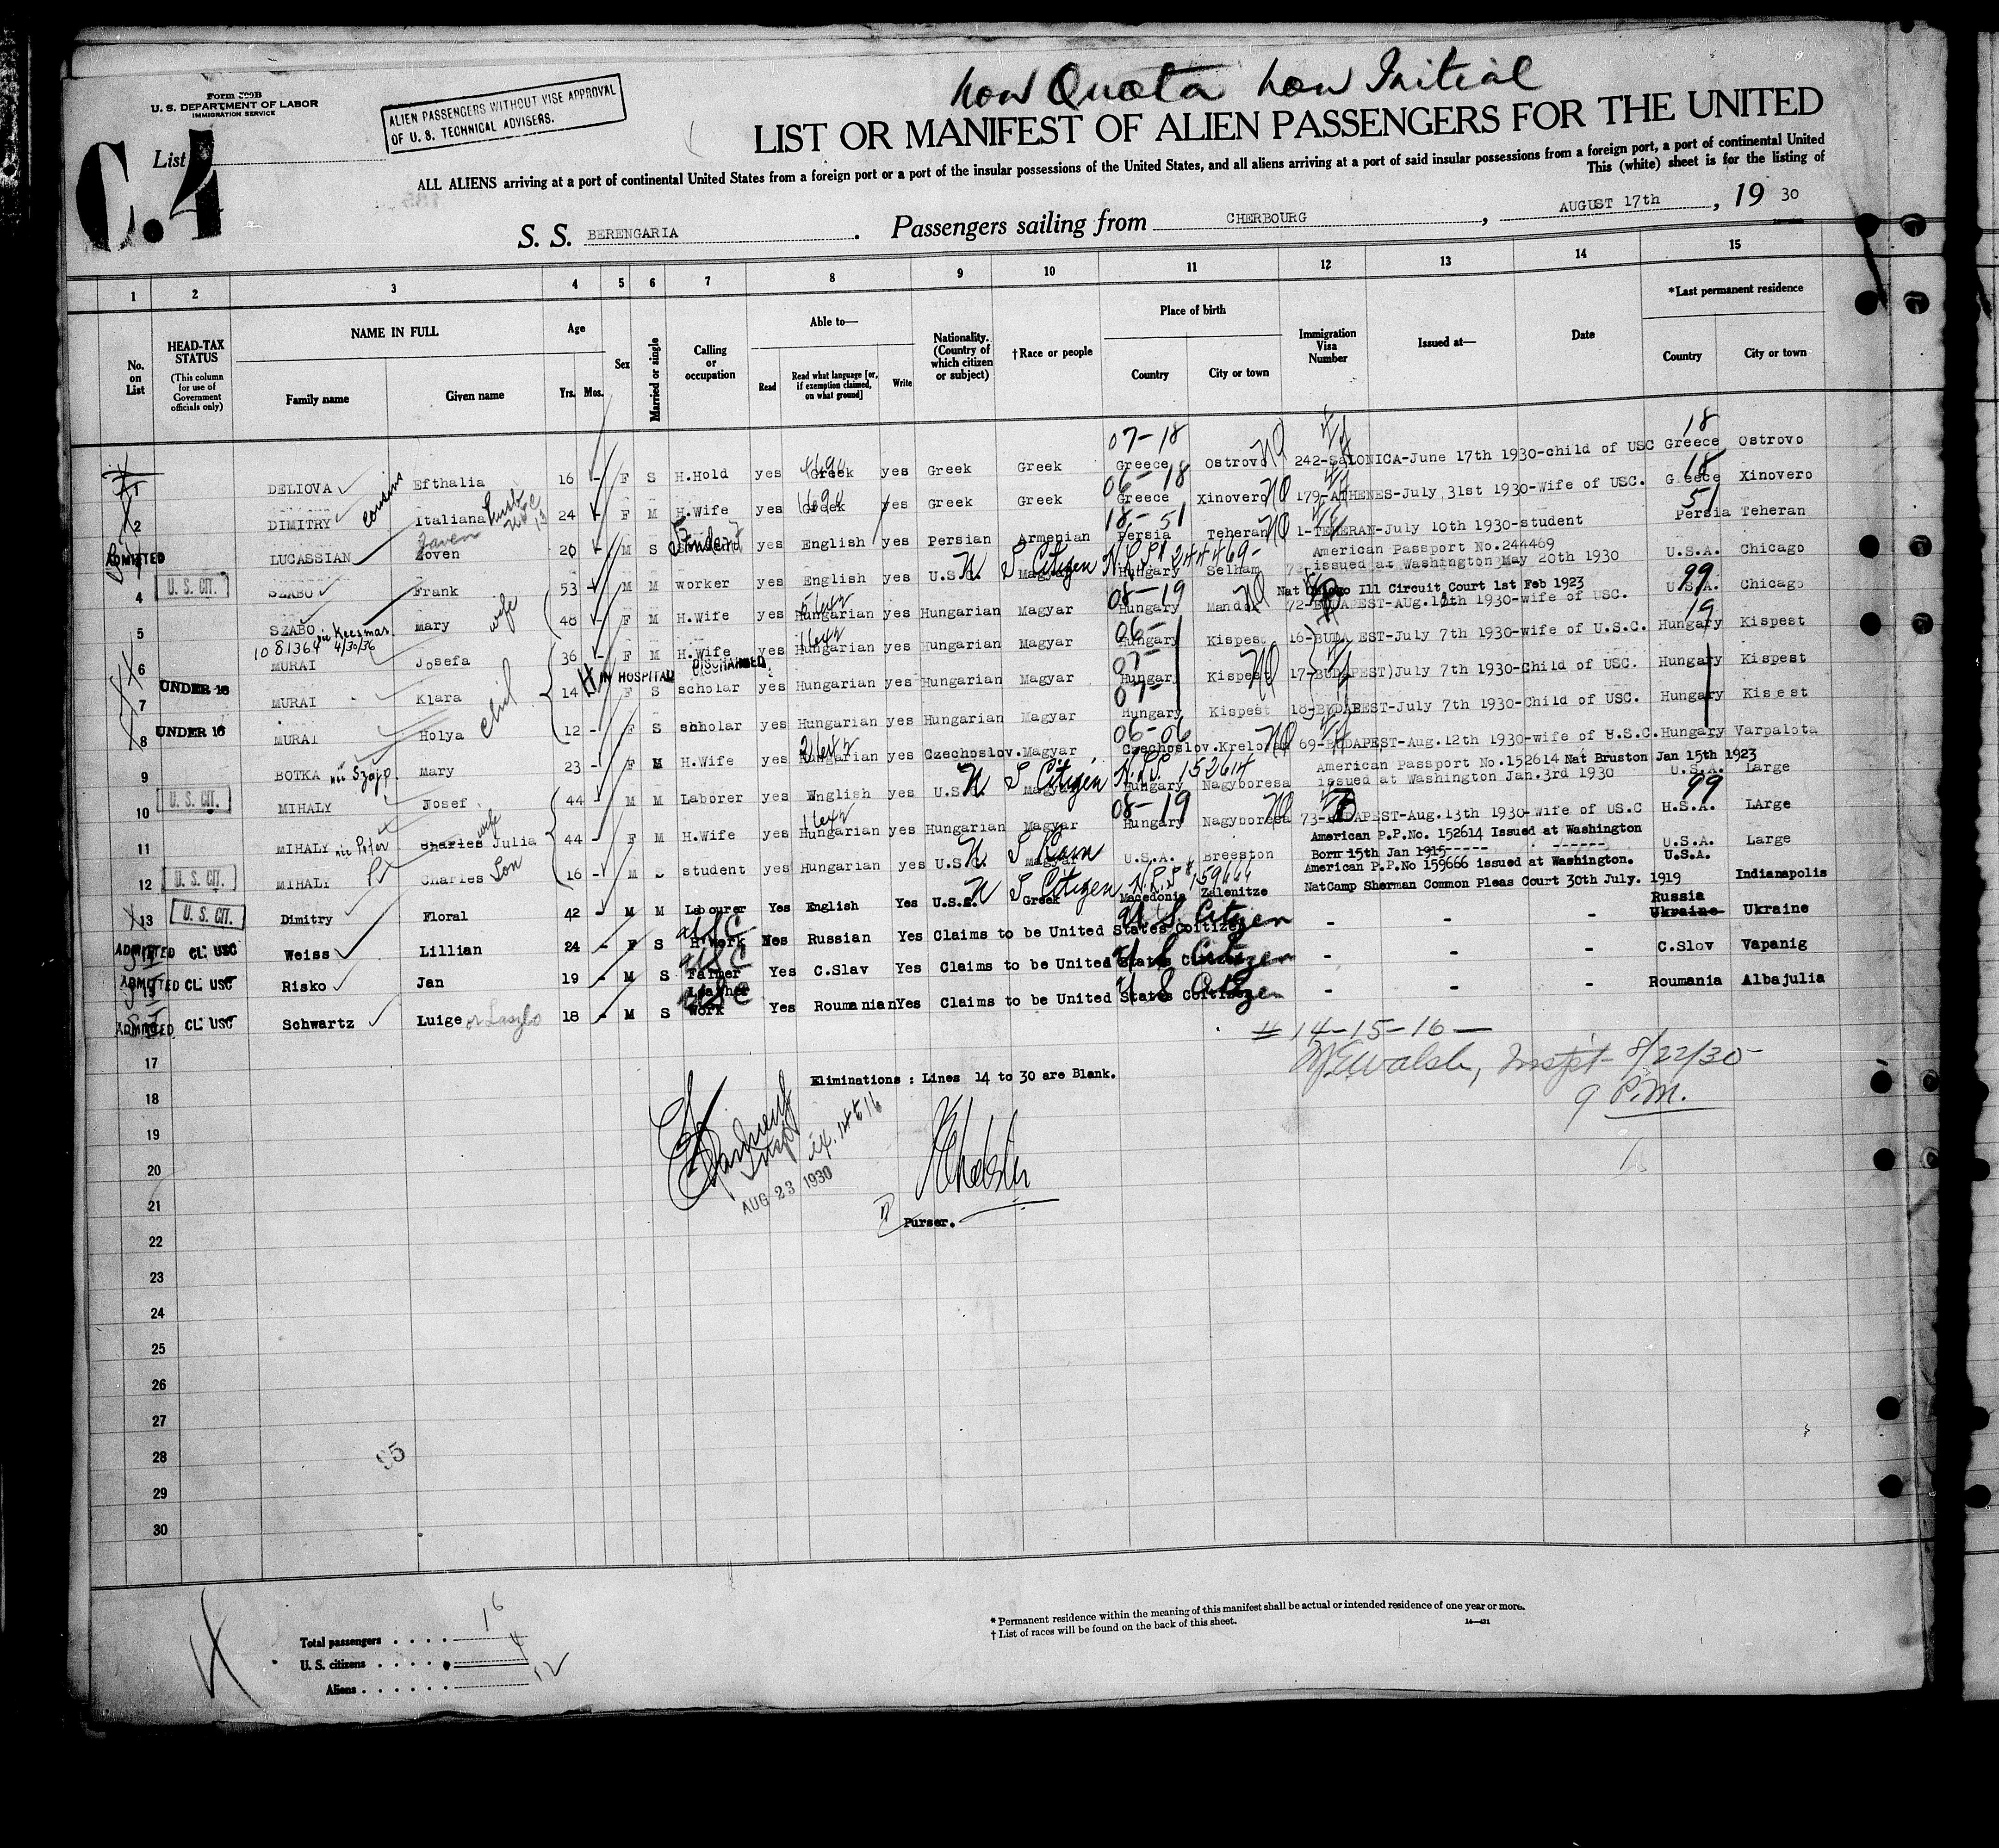 non Quota non Initial
Form 500B
U. S. DEPARTMENT OF LABOR
IMMIGRATION SERVICE
ALIEN PASSENGERS WITHOUT VISE APPROVAL
OF U. S. TECHNICAL ADVISERS.
List C.4
LIST OR MANIFEST OF ALIEN PASSENGERS FOR THE UNITED
ALL ALIENS arriving at a port of continental United States from a foreign port or a port of the insular possessions of the United States, and all aliens arriving at a port of said insular possessions from a foreign port, a port of continental United
This (white) sheet is for the listing of
S. S. BERENGARIA. Passengers sailing from CHERBOURG, AUGUST 17th, 19 30
1 2 3 4 5 6 7 8 9 10 11 12 13 14 15
No. on List
HEAD-TAX STATUS (This column for use of Government officials only)
NAME IN FULL Family name Given name
Age Yrs. Mos.
Sex
Married or single
Calling or occupation
Able to— Read Read what language [or, if exemption claimed, on what ground] Write
Nationality. (Country of which citizen or subject)
†Race or people
Place of birth Country City or town
Immigration Visa Number
Issued at—
Date
*Last permanent residence Country City or town
07-18 18
1 DELIOVA Efthalia 16 - F S H.Hold yes Greek yes Greek Greek Greece Ostrovo 242-SALONICA-June 17th 1930-child of USC Greece Ostrovo
cousins 06-18 18
2 DIMITRY Italiana 24 - F M H.Wife yes Greek yes Greek Greek Greece Xinovero 179-ATHENES-July 31st 1930-Wife of USC. Greece Xinovero
Zaven Student 18-51 51
ADMITTED LUCASSIAN Zoven 20 - M S yes English yes Persian Armenian Persia Teheran 1-TEHERAN-July 10th 1930-student Persia Teheran
U S Citizen N.R.S. 244469- American Passport No.244469
4 U. S. CIT. SZABO Frank 53 - M M worker yes English yes U.S.C. Magyar Hungary Selham issued at Washington May 20th 1930 U.S.A. Chicago
wife 08-19 Nat Chicago Ill Circuit Court 1st Feb 1923 99
5 SZABO Mary 48 - F M H.Wife yes Hungarian yes Hungarian Magyar Hungary Mandok 72-BUDAPEST-Aug.12th 1930-wife of USC. U.S.A. Chicago
née Kecsmar 1081364 4/30/36 06- 19
6 MURAI Josefa 36 - F M H.Wife yes Hungarian yes Hungarian Magyar Hungary Kispest 16-BUDAPEST-July 7th 1930-wife of U.S.C. Hungary Kispest
IN HOSPITAL DISCHARGED 07-
7 UNDER 16 MURAI Klara 14 F S scholar yes Hungarian yes Hungarian Magyar Hungary Kispest 17-BUDAPEST)July 7th 1930-Child of USC. Hungary Kispest
07-
8 UNDER 16 MURAI Holya 12 - F S scholar yes Hungarian yes Hungarian Magyar Hungary Kispest 18-BUDAPEST-July 7th 1930-Child of USC. Hungary Kispest
06-06
9 BOTKA Mary 23 - F M H.Wife yes Hungarian yes Czechoslov. Magyar Czechoslov. 69-BUDAPEST-Aug.12th 1930-wife of U.S.C. Hungary Varpalota
U S Citizen N.R.S. 152614 American Passport No.152614 Nat Bruston Jan 15th 1923
10 U. S. CIT. MIHALY Josef 44 - M M Laborer yes English yes U.S.C. Magyar Hungary Nagyboresa issued at Washington Jan.3rd 1930 U.S.A. Large
wife 08-19 99
11 MIHALY Charles Julia 44 F M H.Wife yes Hungarian yes Hungarian Magyar Hungary Nagyboresa 73-BUDAPEST-Aug.13th 1930-Wife of US.C H.S.A. LArge
U S Born American P.P.No. 152614 Issued at Washington
12 U. S. CIT. MIHALY Charles Son 16 - M S student yes Hungarian yes U.S.C. Magyar U.S.A. Breeston Born 15th Jan 1915----- U.S.A. Large
U S Citizen N.R.S. 159666 American P.P.No 159666 issued at Washington. U.S.A.
13 U. S. CIT. Dimitry Floral 42 - M M Labourer Yes English Yes U.S.C. Greek Macedonia Zalenitze NatCamp Sherman Common Pleas Court 30th July. 1919 Indianapolis
USC U. S. Citizen Russia
ADMITTED CL. USC Weiss Lillian 24 - F S H.Work Yes Russian Yes Claims to be United States Coitizen - - - Ukraine Ukraine
USC U S Citizen
ADMITTED CL. USC Risko Jan 19 - M S Farmer Yes C.Slav Yes Claims to be United States Citizen - - - C.Slov Vapanig
USC Leather U S Citizen
ADMITTED CL. USC Schwartz Luige or Laszlo 18 - M S Work Yes Roumanian Yes Claims to be United States Coitizen - - - Roumania Albajulia
# 14-15-16-
17
Walsh, Inspt 8/22/30
9 P.M.
Eliminations : Lines 14 to 30 are Blank.
18
19
20
AUG 23 1930
21
Purser.
22
23
24
25
26
27
28
95
29
30
Total passengers . . . . 16
U. S. citizens . . . . . 4
Aliens . . . . . . 12
* Permanent residence within the meaning of this manifest shall be actual or intended residence of one year or more.
† List of races will be found on the back of this sheet.
14—431